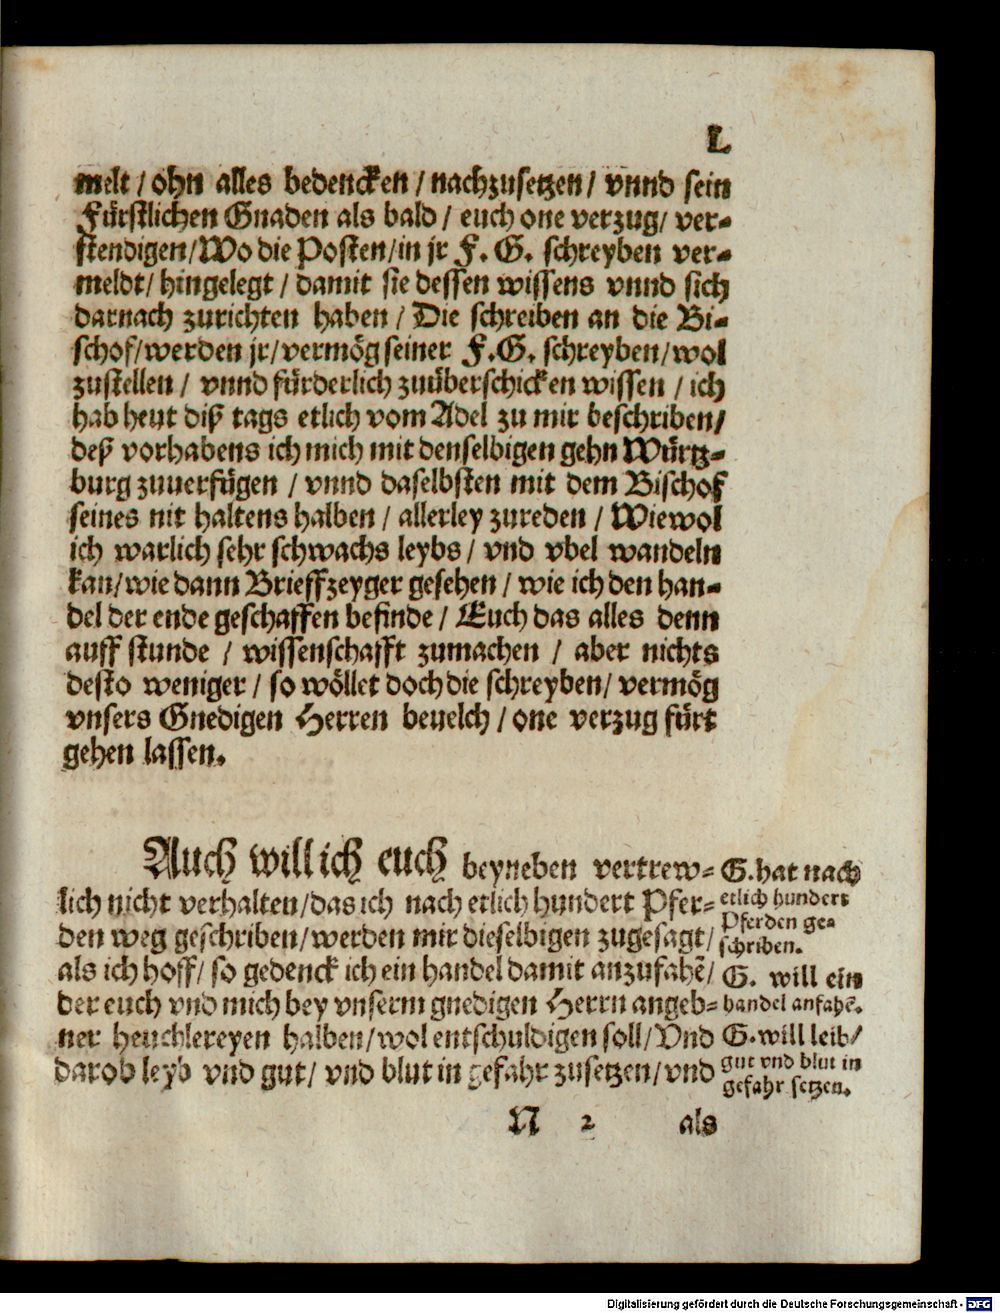 L
melt / ohn alles bedencken / nachzusetzen / vnnd sein
Fürstlichen Gnaden als bald / euch one verzug / ver-
stendigen / Wo die Posten / in jr F. G. schreyben ver-
meldt / hingelegt / damit sie dessen wissens vnnd sich
darnach zurichten haben / Die schreiben an die Bi-
schof / werden jr / vermög seiner F. G. schreyben / wol
zustellen / vnnd fürderlich zuüberschicken wissen / ich
hab heut diß tags etlich vom Adel zu mir beschriben /
deß vorhabens ich mich mit denselbigen gehn Würtz-
burg zuuerfügen / vnnd daselbsten mit dem Bischof
seines nit haltens halben / allerley zureden / Wiewol
ich warlich sehr schwachs leybs / vnd vbel wandeln
kan / wie dann Brieffzeyger gesehen / wie ich den han-
del der ende geschaffen befinde / Euch das alles denn
auff stunde / wissenschafft zumachen / aber nichts
desto weniger / so wöllet doch die schreyben / vermög
vnsers Gnedigen Herren beuelch / one verzug fürt
gehen lassen.
Auch will ich euch beyneben vertrew-
lich nicht verhalten / das ich nach etlich hundert Pfer-
den weg geschriben / werden mir dieselbigen zugesagt /
als ich hoff / so gedenck ich ein handel damit anzufahē /
der euch vnd mich bey vnserm gnedigen Herrn angeb-
ner heuchlereyen halben / wol entschuldigen soll / Vnd
darob leyb vnd gut / vnd blut in gefahr zusetzen / vnd
G. hat nach
etlich hundert
Pferden ge-
schriben.
G. will ein
handel anfahē.
G. will leib /
gut vnd blut in
gefahr setzen.
N 2 als
Digitalisierung gefördert durch die Deutsche Forschungsgemeinschaft - DFG